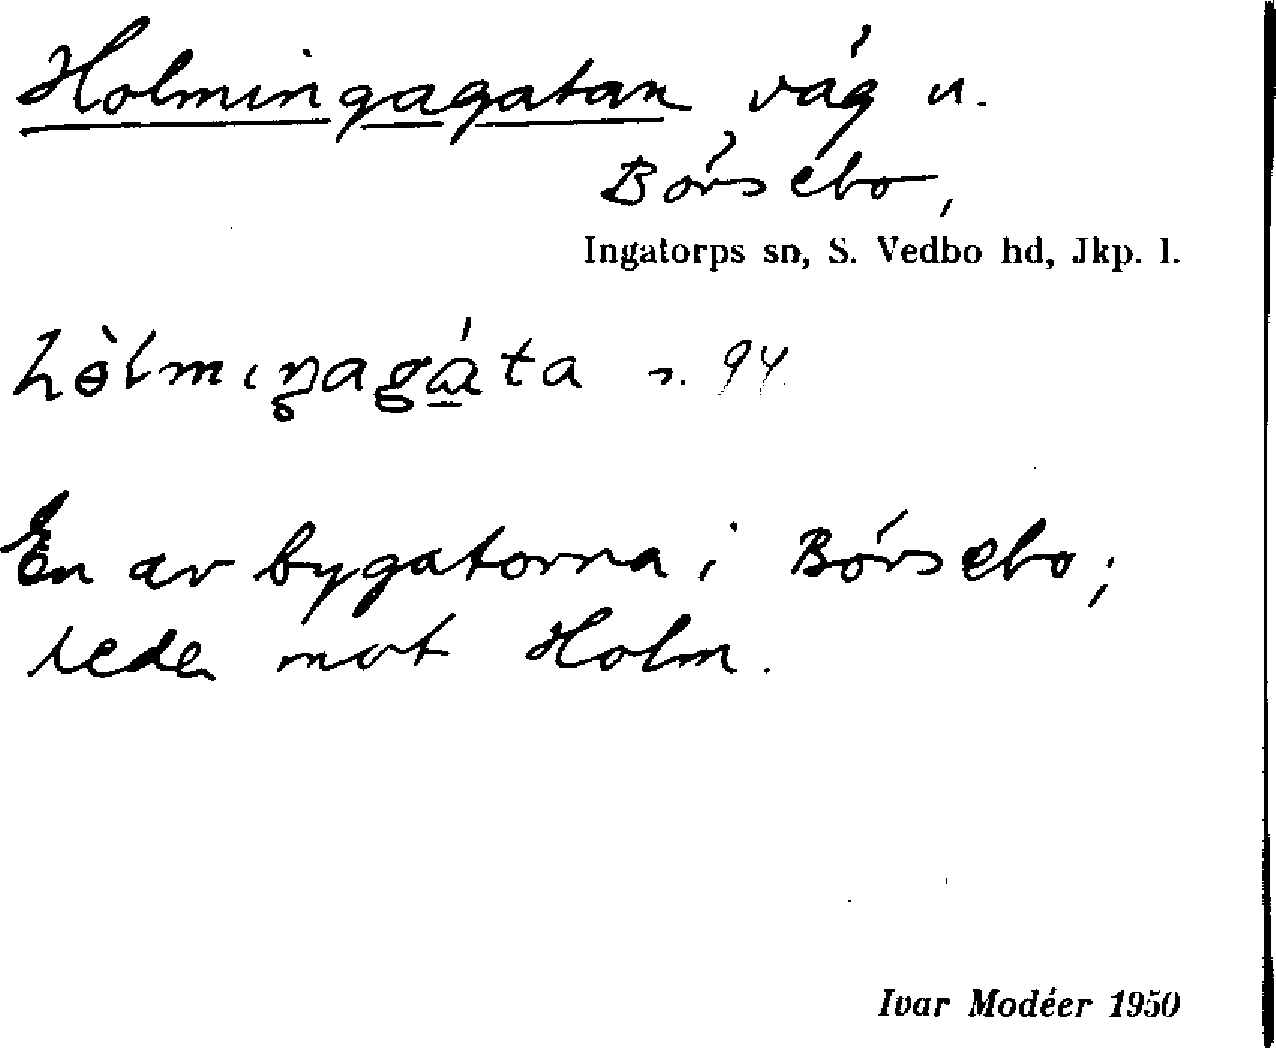 Holmingagatan väg u.
Börsebo,
Ingatorps sn, S. Vedbo hd, Jkp. l.
94
En av bygatorna i Börsebo;
leder mot Holm.
Ivar Modéer 1950